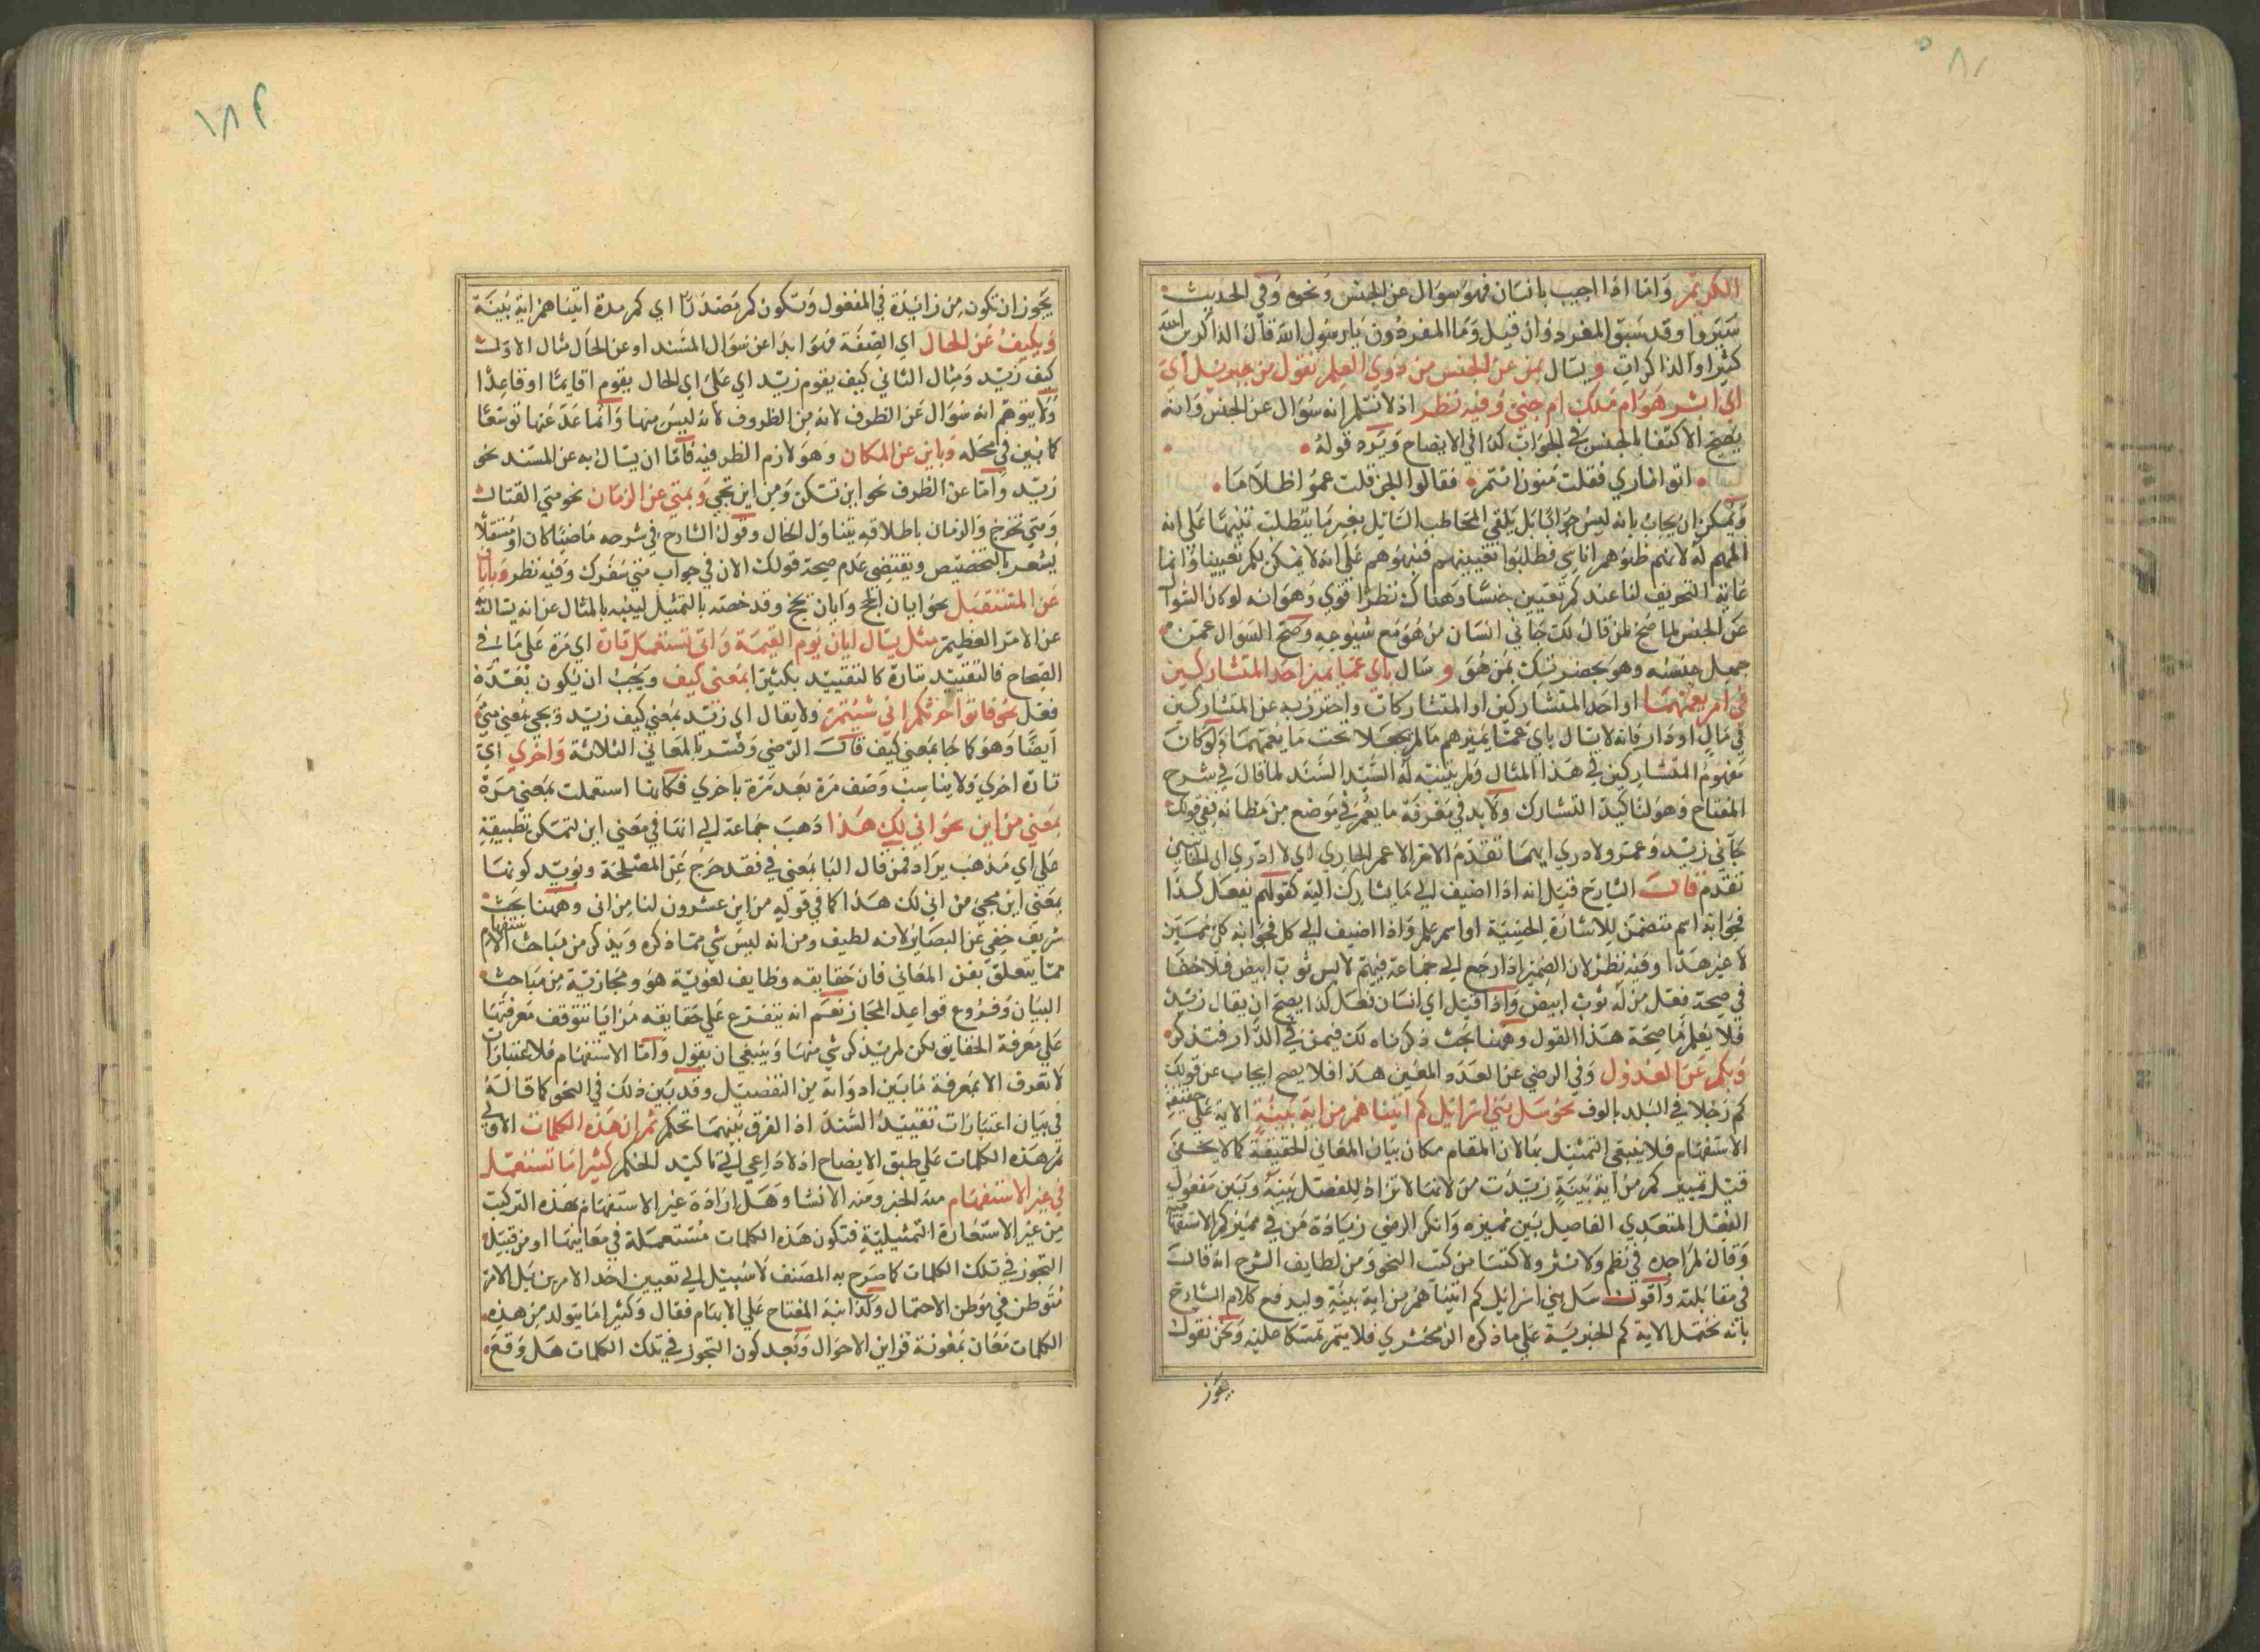 الكريم وَامّا اذا اجيب بانسَان فهوَ سوَال عن الجنس وَنحوه وَفي الحديث
سَيروا وقد سَبق المفردوُن قيل وَمَا المفردُون يَا رسوُل الله قال الذاكرين الله
كثيرا والذاكراتِ و يسَال بمن عن الجنس من ذوي العلم تقول من جبريل اي
اي ابشر هوَ ام مَلك ام جني وفيه نظر اذ لا نسَلم انه سُوَال عن الجنس وَانه
يصح الاكتفا بالجنس في الجوَاب كذا في الايضاح وَيَرده قولهُ
اتوا ناري فقلت مَنون انتم فقالوا الجن قلت عموُا ظلامَا
وَيمكن ان يجابُ بانه ليسَ جوَابًا بَل يلقي المخاطب السَايل بغير مَا يتطلب تنبيهًا عَلى انه
المهم لهُ لانهم ظنوُهم اناسي فطلبوُا تعيينهم فنبهوُهم عَلى انهُ لا يمكن بكم تعيينا وَانما
غاية التعريف لنا عندكم تعيين جنسنا وَهناك نظر اقوي وَهوَ انه لو كان السُوال
عَن الجنس لما صح لمن قالُ لك جَاني انسَان من هُوَ مَع شيُوعِهِ وَصح السَوال عمن
جهل جنسه وهوَ بحضرتك بمَن هُوَ و سَال باي عما يميز احَد المتشاركين
في امر يعمّهمَا او احَد المتشاركين او المتشاركات وَاحترز به عن المتشاركين
في مَالٍ او دَارٍ فانه لا يسَال باي عمّا يميزهم مَا لم يجعَلا تحت مَا يعمّهمَا وَلوكانَ
مَفهومُ المتشاركين في هَذا المثال وَلم ينتبه لهُ السَّيّد السّنَد لما قالَ في شرح
المفتاح وَهوَ لتاكيد التشارك وَلابد في مَعرفة مَا يعُم في مَوضع من مَظانه ففي قولك
جَآني زيد وَعمرو ولا ادري ايهمَا تقدّم الامر الاعم الجاري اي لا ادري اي الجَايين
تقدم قال الشارح قيَل انه اذا اضيف الي مَا يشارك اليه كقولكم يفعَل كذا
فجوَابهُ اسم متضمّن للاشارَةِ الحسيّة او اسم علم وَاذا اضيف الي كل فجوَابه كل مُعيّن
لا غير هَذا وفيه نظر لان الضمير اذا رجع الي جمَاعة فيهم لابس ثوب ابيض فلا خفا
في صحة فعل من لهُ ثوب ابيض وَاذا قيل اي انسَان فعَل كذا يصح ان يقال زَيد
فلا يعلم مَا صحَة هَذا القول وهَهنا بحَث ذكرناه لك فيمَن في الدَّار فتذكر
وَبكم عَن العَدَد وَفي الرضي عن العدَد المعَين هَذا فلا يصح ايجاب عن قولك
كم رَجلا في البَلد بالوف نحوُ سَل بني اسرائيل كم آتينا هُم من آية بَينةٍ الاية عَلى حقيقة
الاستفهام فلا ينبغي التمثيل بهَا لان المقام مكان بيَان المعَاني الحقيقة كمَا لا يخفى
قيل تمييز كم من آية بَينَةٍ زيدَت من لانها لا تزاد للفصَل بَينهُ وَبَين مَفعُول
الفعل المتعَدي الفاصِل بَين مميزه وَانكر الرضي زيَادة مَن في مميز كم الاستفهامية
وَقال لم اجده في نظم وَلا نثر ولا كتَاب من كتب النحو وَمن لطايف الشرح انه قال
في مقابلته وَاقول سَل بني اسرائيل كم آتينا هُم من آية بينةٍ وليدفع كلام الشارح
بأنه تحتمل الاية كم الخبريّة عَلي ماذكره الزمخشري فلا يتم تمسّكا عليه وَنحن نقول
يجوز
١٨٢
يَجوز ان تكون مِن زائدَة في المفعُول وَتكون كم مَصدَرًا اي كم مدة اتينا هم آية بَينَة
وَبكيفُ عَن الحَال اي الصّفَة فهوَ ابدًا عن سُوَال المسند او عن الحَال مثال الاوّل
كيف زيد وَمثال الثاني كيف يقوم زيد اي عَلى اي الحال يقوم اقايمًا او قاعِدًا
وَلا يتوهّم انه سُوَال عَن الظرف لانه مِن الظروف لانه ليسَ منهَا وَانمَا عَدّ عَنها توسّعًا
كما بين في مَحَله وَباين عن المكان وَهوَ لازم الظرفيه فامّا ان يسَال به عن المسند نحو
زيد وَامّا عن الظرف نحو اين تسكن وَمن اين تجي وَبمتي عن الزمَان نحو متي القتال
وَمتي تخرج وَالزمان باطلاقه يتناول الحَال وقول الشارح في شرحه مَاضيًا كان او مُستقبلًا
يشعر بالتخصيص ويقتضى عدم صحة قولك الان في جوَاب متي سَفرك وَفيه نظر وَبايان
عَن المستقبل نحو ايان الحج وَايان تحج وقد خصته بالتمثيل لينبه بالمثال عن انه يسَال
عن الامرّ العظيم مثل يسَال ايان يَوم القيمَة وَانى تستعمل تارة اي مَرة عَلي مَا في
الصّحاح فالتقييد بتارة كالتقييد بكثيرًا بمعَني كيف ويَجبُ ان يكون بَعدَهُ
فعَل نحو فاتوا حَرثكم اني شئتم وَلا يقال اني زيد بمعني كيف زيد وَيجي بمعَني متى
ايضًا وَهوَ كالجَا بمعني كيف قالَ الرضي وَفسّر بالمعَاني الثلاثة وَاخري اي
تارة اخري وَلا يناسِب وَصف مَرة بَعد مَرة باخري فكانها استعملت بمَعني مَرة
بمَعني من اين نحو اني لك هَذا ذهبَ جمَاعة الي انها في مَعني اين لتمكن تطبيقه
عَلي اي مَذهب يرَاد فمَن قال انها بمَعني في فقد خرَج عَن المصَلحَة وَيوُيّد كونها
بمعَني اين مجيء من اني لك هَذا كما في قوله من اين عشرون لنا من انى وههنا بحَث
شريَف خفي عَن البصَاير لانه لطيف ومن انه ليسَ شي ممّا ذكره وَيذكر من مبَاحث الاستفهام
ممّا يتعلق بفن المعَاني فان حَقايقه وظايف لغويّة هوَ ومجازيّة مِن مَبَاحث
البيَان وَفروُع قواعد المجَاز نعَم انه يتفرّع عَلي حَقايقه مَزايَا تتوقف مَعرفتهَا
عَلي مَعرفة الحقايق لكن لم يَذكر شي منها وَينبغي ان يقول وَامّا الاستفهام فلاعتبَارات
لا تعرف الا بمَعرفة مَا بَين ادوَاته من التفصيل وقد بَين ذلك في النحو كما قالهُ
في بيَان اعتبَارات تقييد السّند اذ الفرق بَينهمَا تحكم ثم ان هَذه الكلمات الاولي
ثم هَذه الكلمات عَلي طبق الايضاح اذ لا دَاعي الي تاكيد الحكم كثيرا مَا تستعمَل
في غير الاستفهَام منه الخبر ومنه الانشا وَهَل ارادَة غير الاستفهَام بهَذه التركيب
مِن غير الاستعَارة التمثيليّة فتكون هَذه الكلمات مُستعمَلة في مَعَانيهَا او من قبيَل
التجوز في تلك الكلمات كما صَرح به المصَنف لا سَبيل الي تعيين احَد الامرين بَل الامر
مُتوَطن في مَوطن الاحتمال وَلذا نبهَ المفتاح عَلي الابهَام فقال وَكثيرا مَا يتولد مِن هذه
الكلمات مَعَان بمَعُونة قراين الاحوَال وَبعد كون التجوز في تلك الكلمات هَل وَقعَ